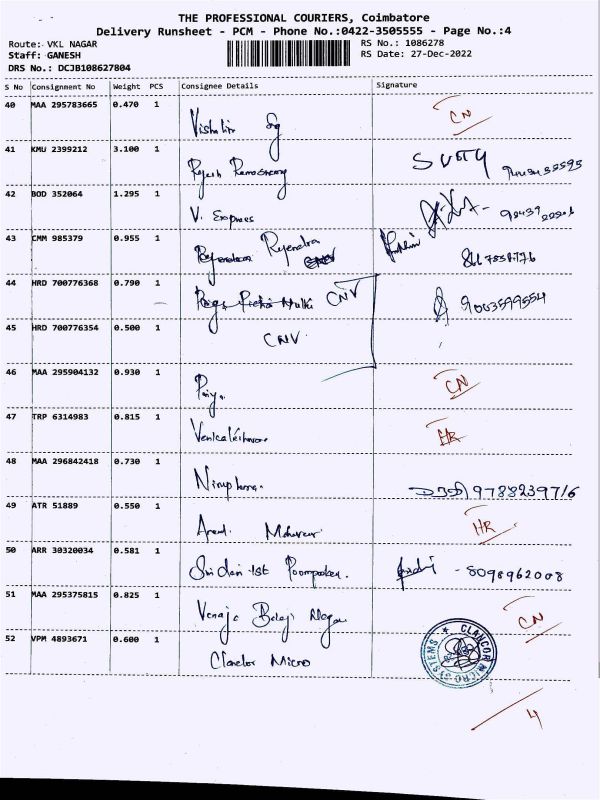 THE PROFESSIONAL COURIERS, Coimbatore
Delivery Runsheet - PCM - Phone No.:0422-3505555 - Page No.:4
Route: VKL NAGAR
Staff: GANESH
DRS No.: DCJB108627804
RS No.: 1086278
RS Date: 27-Dec-2022
S No Consignment No Weight PCS Consignee Details Signature
40 MAA 295783665 0.470 1 CN
41 KMU 2399212 3.100 1
42 BOD 352064 1.295 1 V. Express
43 CMM 985379 0.955 1 Rajendra
44 HRD 700776368 0.790 1 CNV 9003599554
45 HRD 700776354 0.500 1 CNV
46 MAA 295904132 0.930 1 Priya. CN
47 TRP 6314983 0.815 1 HR
48 MAA 296842418 0.730 1 9788239716
49 ATR 51889 0.550 1 HR
50 ARR 30320034 0.581 1 - 8098962008
51 MAA 295375815 0.825 1 Balaji CN
52 VPM 4893671 0.600 1 Micro
CLANCOR MICRO SYSTEMS
4